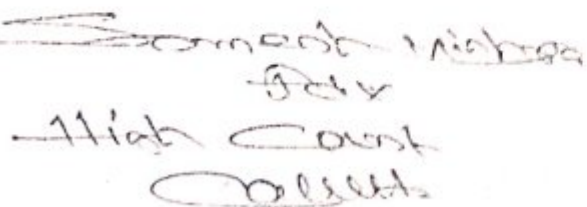 Somnath Mishra
Adv
High Court
Calcutta